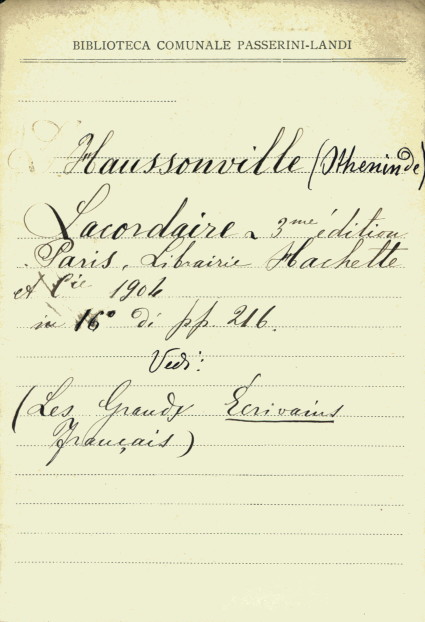 BIBLIOTECA COMUNALE PASSERINI-LANDI
Haussonville (Othenin de)
Lacordaire ~ 3me édition
Paris, Librairie Hachette
et Cie 1904
in 16° di pp. 216.
Vedi:
(Les Grands Ecrivains
Français)